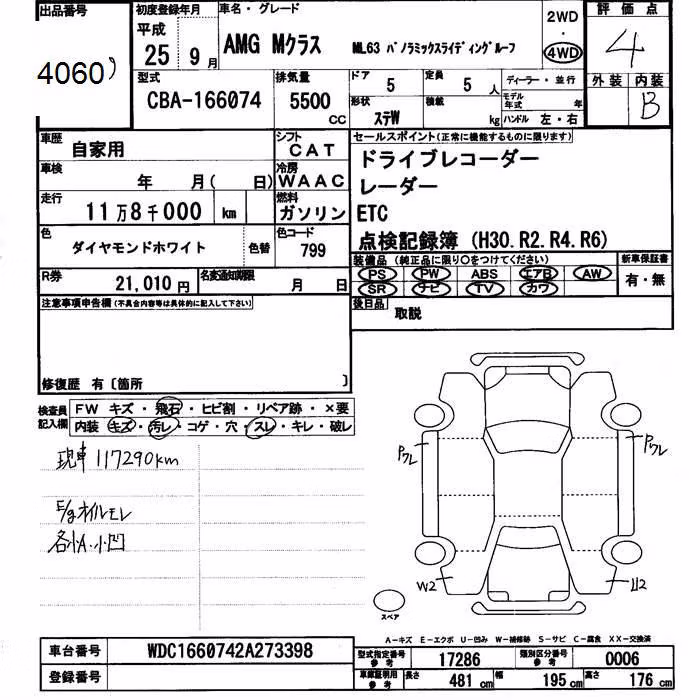 出品番号
4060
初度登録年月
平成
25 9月
車名・グレード
AMG Mクラス
ML63 パノラミックスライディングルーフ
2WD
・
4WD
評価点
4
外装 内装
B
型式
CBA-166074
排気量
5500
cc
ドア
5
定員
5人
形状
ステW
積載
kg
ディーラー・並行
モデル年式 年
ハンドル 左・右
車歴
自家用
シフト
CAT
車検
年 月( 日)
冷房
WAAC
走行
11万8千000 km
燃料
ガソリン
色
ダイヤモンドホワイト
色替
色コード
799
R券
21,010円
名変通知期限
月 日
セールスポイント(正常に機能するものに限ります)
ドライブレコーダー
レーダー
ETC
点検記録簿(H30.R2.R4.R6)
装備品(純正品に限り○をつけてください)
PS PW ABS エアB AW
SR ナビ TV カワ
新車保証書
有・無
後日品
取説
注意事項申告欄(不具合内容等は具体的に記入して下さい)
修復歴 有〔箇所 〕
検査員記入欄
FW キズ・飛石・ヒビ割・リペア跡・×要
内装 キズ・汚レ・コゲ・穴・スレ・キレ・破レ
現車 117290km
E/gオイルモレ
各小A・小凹
Pクレ
Pクレ
W2
U2
スペア
A-キズ E-エクボ U-凹み W-補修跡 S-サビ C-腐食 XX-交換済
車台番号
WDC1660742A273398
登録番号
型式指定番号
参考
17286
類別区分番号
参考
0006
車庫証明用
参考
長さ 481cm
幅 195cm
高さ 176cm